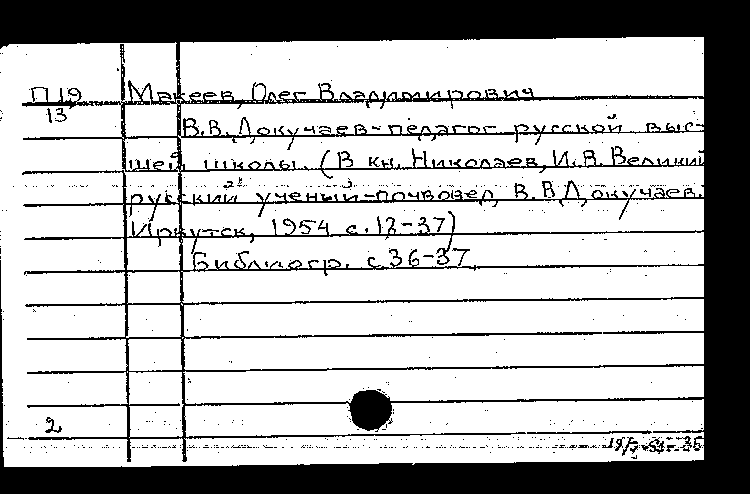 П19 Макеев, Олег Владимирович
13
В.В.Докучаев-педагог русской выс-
шей школы. (В кн. Николаев, И.В. Великий
русский ученый-почвовед В.В.Докучаев.
Иркутск, 1954 с.12-37)
Библиогр. с 36-37
2